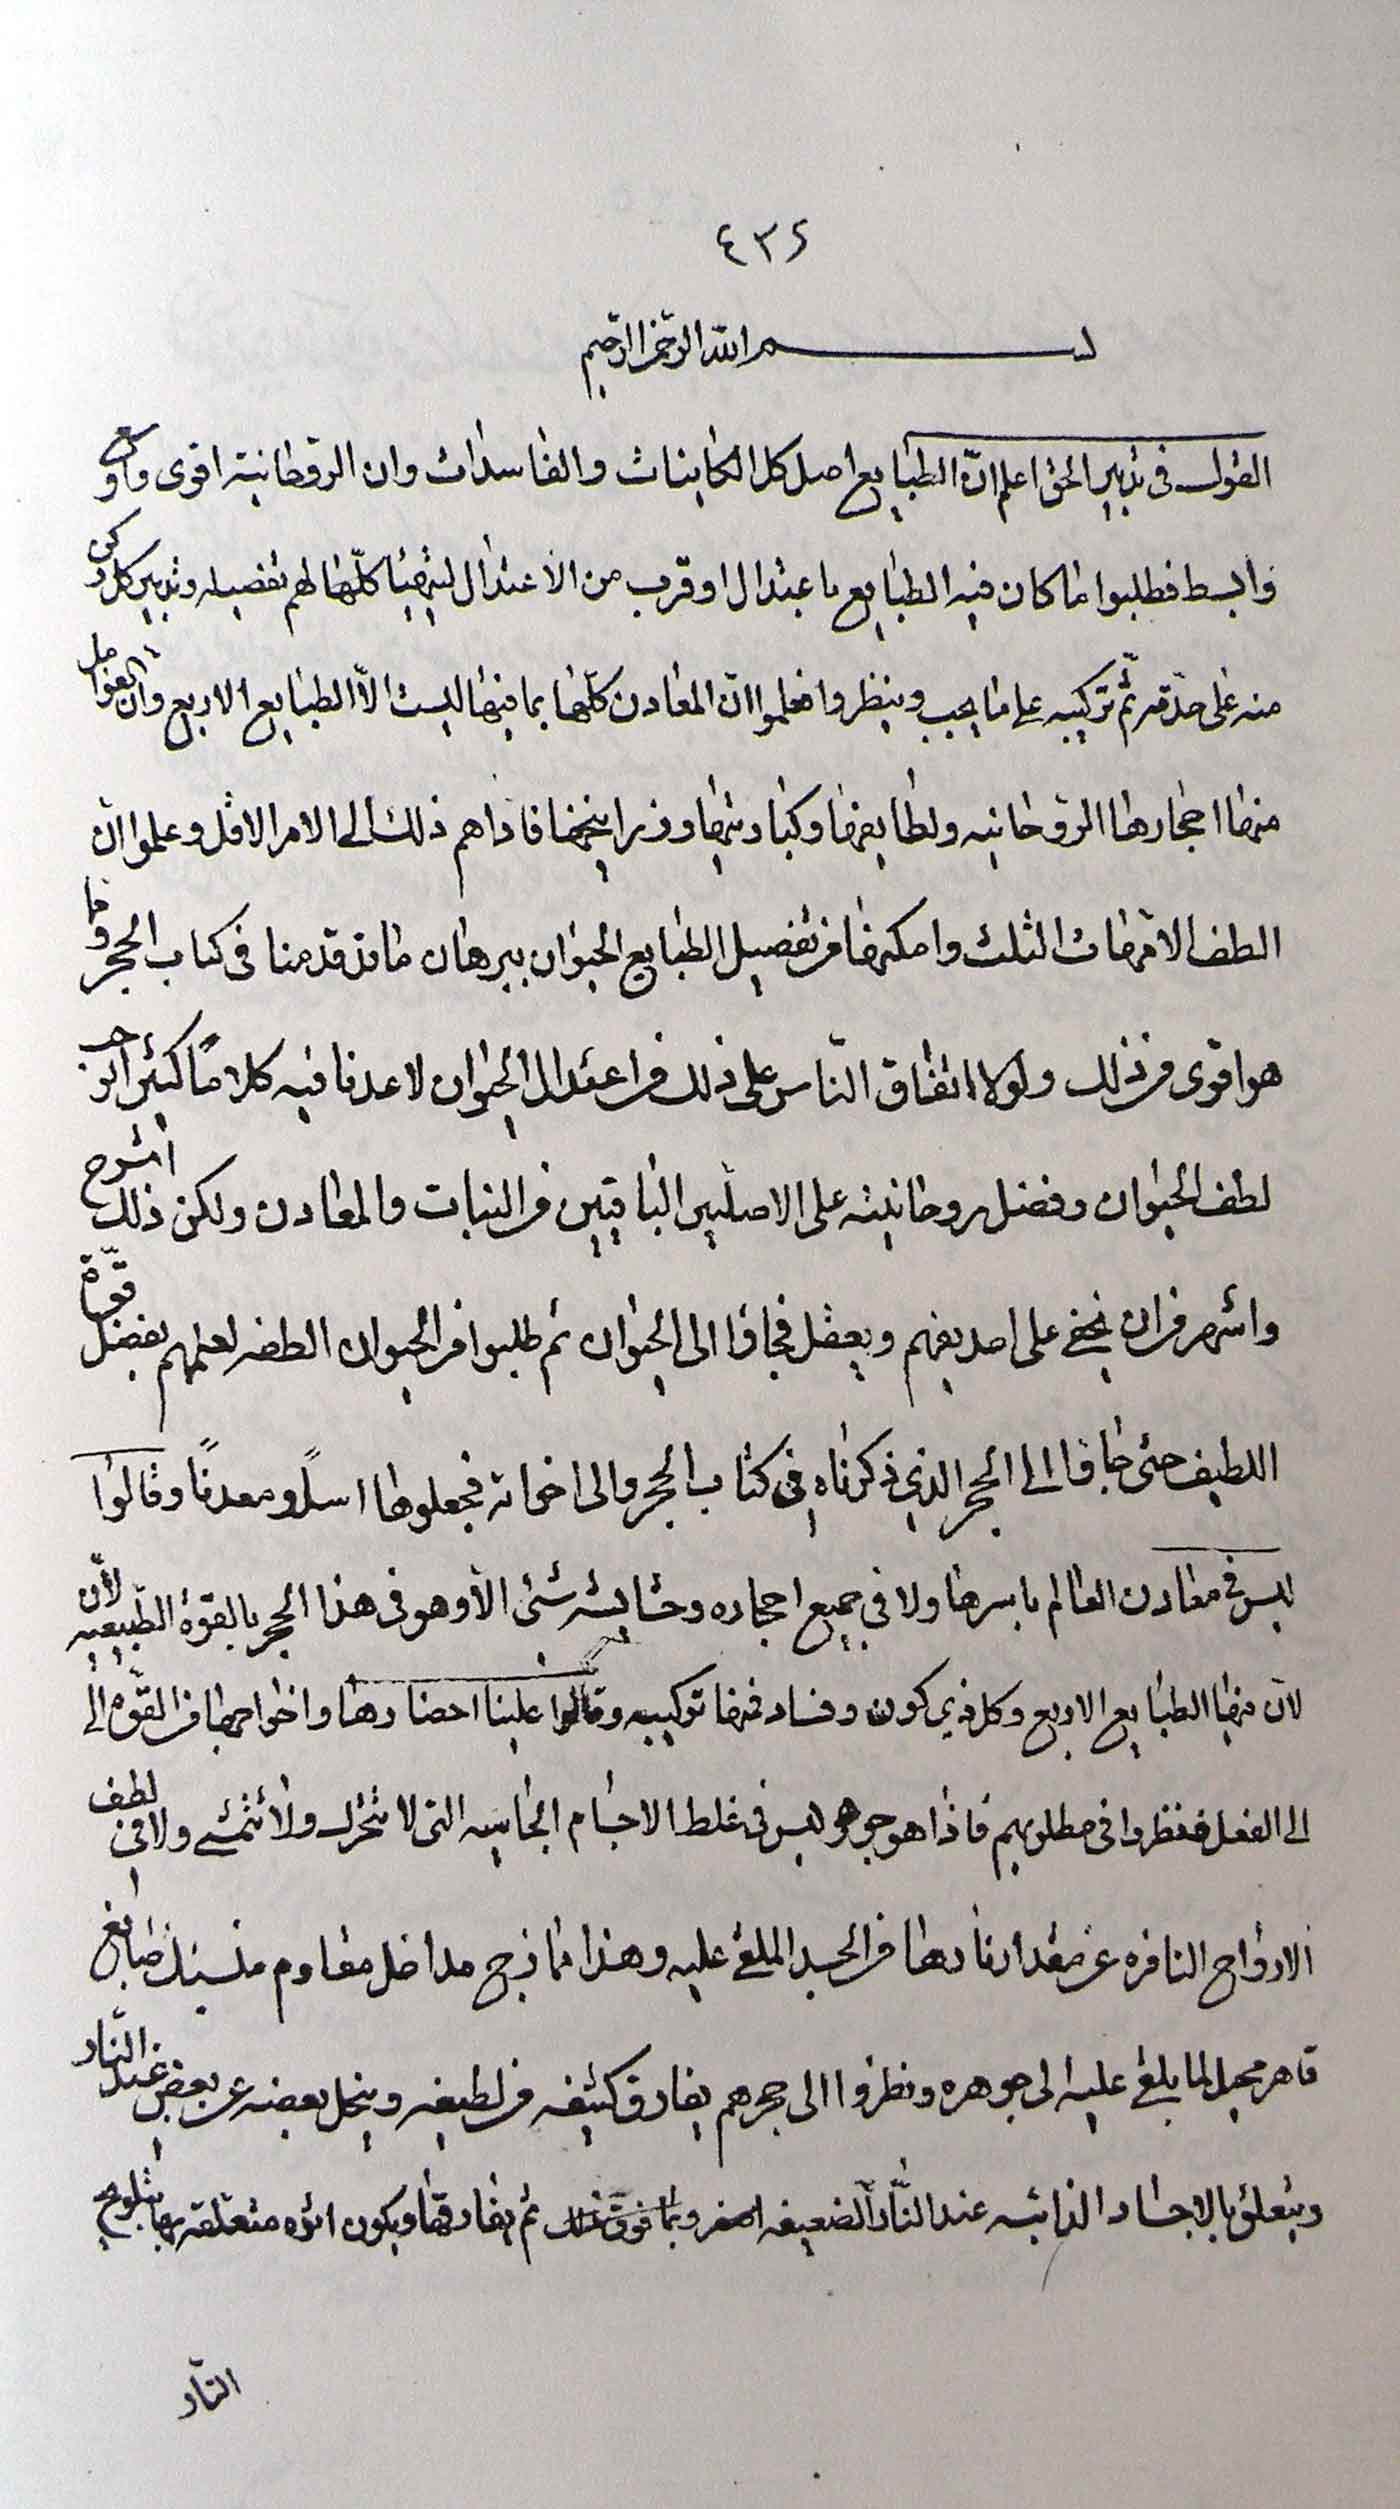 ٤٣٢
بسم الله الرحمن الرحيم
القول فى تدبير الحق اعلم ان الطبايع اصل كل الكاينات والفاسدات وان الروحانية اقوى واوسع
وابسط فطلبوا ما كان فيه الطبايع باعتدال او قرب من الاعتدال ليتهيا كلها لهم تفصيله وتدبير كل ركن
منه على حدته ثم تركيبه على ما يجب وينظروا فعلموا ان المعادن كلها بما فيها ليست الا الطبايع الاربع وان العوامل
منها احجارها الروحانيه ولطايفها وكباريتها وزرانيخها فاداهم ذلك الى الامر الاول وعلموا ان
الطف الامهات الثلث وامكنها من تفصيل الطبايع الحيوان ببرهان ما قد قدمنا فى كتاب الحجر وما
هو اقوى من ذلك ولولا اتفاق الناس على ذلك من اعتدال الحيوان لاعدنا فيه كلاما كثيرا
لطف الحيوان وفضل روحانيته على الاصلين الباقيين من النبات والمعادن ولكن ذلك اشرح
واشهر من ان يخفى على احد يفهم ويعقل فجاوا الى الحيوان ثم طلبوا من الحيوان الطفه لعلمهم بفضل قوة
اللطيف حتى جاوا الى الحجر الذي ذكرناه فى كتاب الحجر والى اخواته فجعلوها اسلا ومعدنا وقالوا
ليس فى معادن العالم باسرها ولا فى جميع احجاره وحشايشه شئ الا وهو فى هذا الحجر بالقوة الطبيعيه لان
لان فيها الطبايع الاربع وكل ذي كون وفساد فمنها تركيبه وقالوا علينا احضارها واخراجها من القوه الى
الى الفعل فنظروا فى مطلوبهم فاذا هو جوهر ليس فى غلظ الاجسام الجاسيه التى لا تتحرك ولا تتمشى ولا فى لطف
الارواح النافره عن مقدار نارها من الجسد الملقى عليه وهذا مازج مداخل مقاوم منسبك صابغ
قاهر محيل لما يلقى عليه الى جوهره ونظروا الى حجرهم يفارق كثيفه من لطيفه وينحل بعضه عن بعض عند النار
ويتعلق بالاجساد الذائبه عند النار الضعيفه وبما فوق ذلك ثم يفارقها ويكون اثره متعلقه بها يتلوح
النار